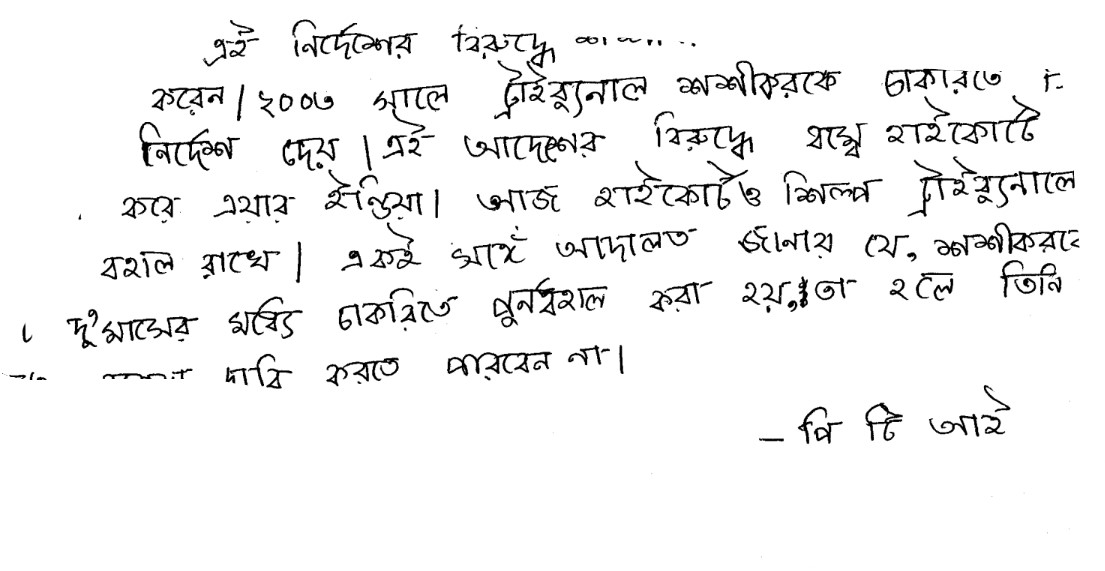 এই নির্দেশের বিরুদ্ধে
করেন। ২০০৩ সালে ট্রাইব্যুনাল শশীকরকে চাকরিতে
নির্দেশ দেয়। এই আদেশের বিরুদ্ধে বম্বে হাইকোর্টে
করে এয়ার ইন্ডিয়া। আজ হাইকোর্টও শিল্প ট্রাইব্যুনালে
বহাল রাখে। একই সঙ্গে আদালত জানায় যে, শশীকরকে
দু'মাসের মধ্যে চাকরিতে পুনর্বহাল করা হয়, তা হলে তিনি
দাবি করতে পারবেন না।
– পি টি আই